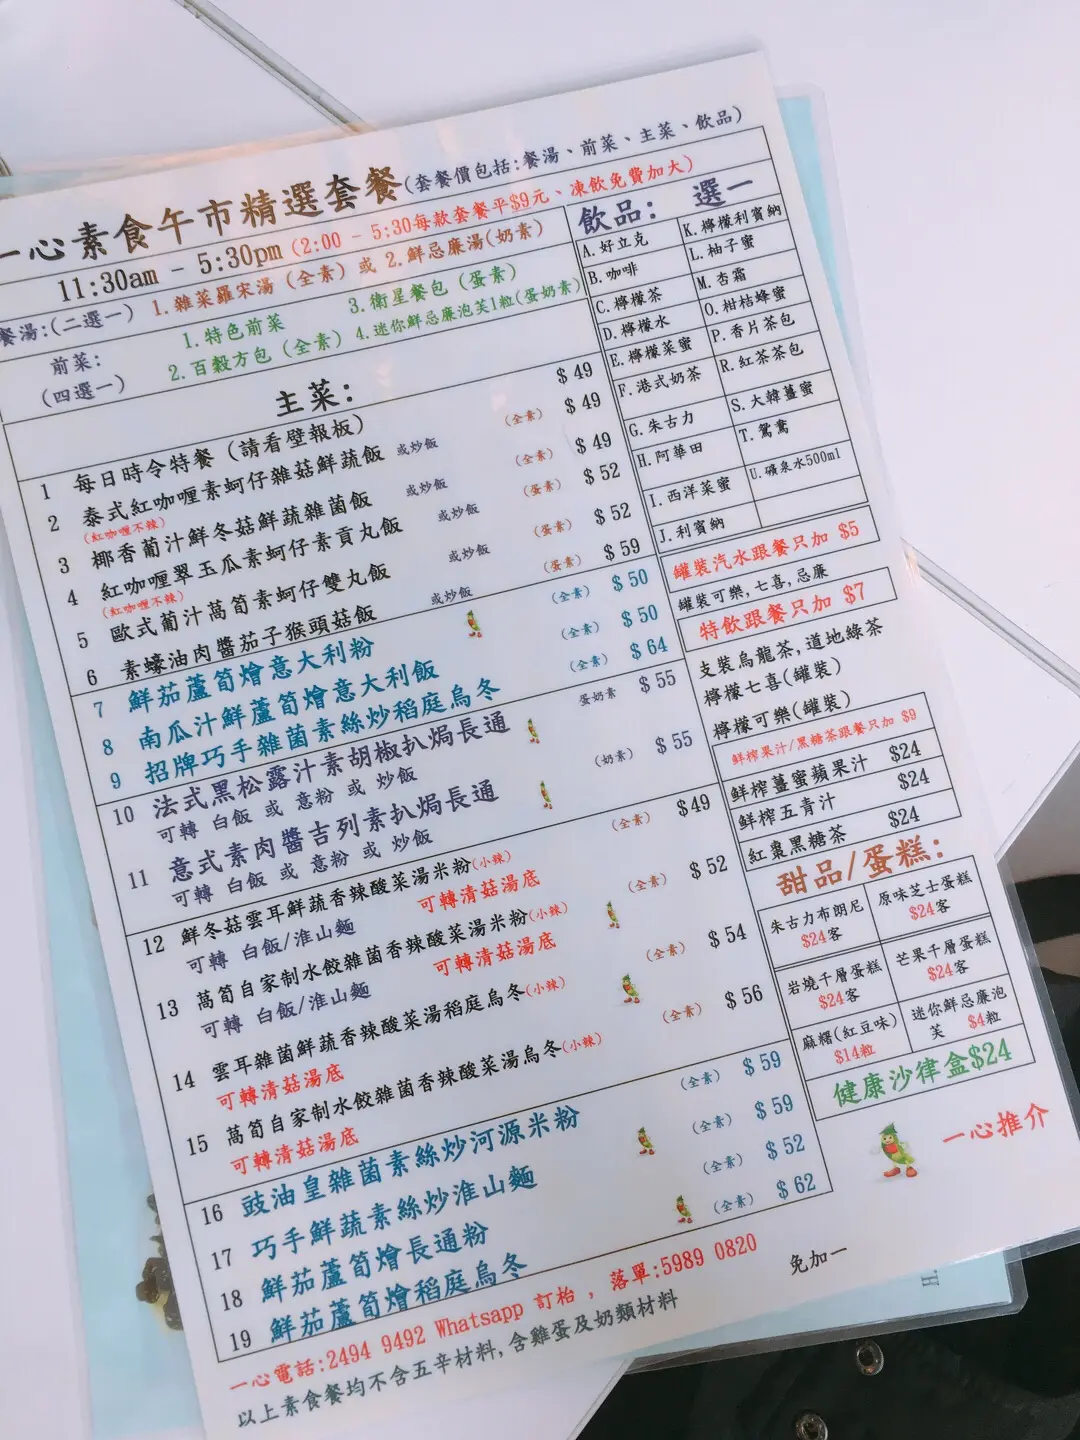 一心素食午市精選套餐(套餐價包括:餐湯、前菜、主菜、飲品)
11:30am - 5:30pm (2:00 - 5:30每款套餐平$9元、凍飲免費加大)
餐湯:(二選一) 1.雜菜羅宋湯(全素) 或 2.鮮忌廉湯(奶素)
前菜:
(四選一)
1.特色前菜 3.衛星餐包(蛋素)
2.百穀方包(全素) 4.迷你鮮忌廉泡芙1粒(蛋奶素)
主菜:
1 每日時令特餐(請看壁報板) $49
2 泰式紅咖喱素蚵仔雜菇鮮蔬飯 或炒飯 (全素) $49
(紅咖喱不辣)
3 椰香葡汁鮮冬菇鮮蔬雜菌飯 或炒飯 (全素) $49
4 紅咖喱翠玉瓜素蚵仔素貢丸飯 或炒飯 (蛋素) $52
(紅咖喱不辣)
5 歐式葡汁萵筍素蚵仔雙丸飯 或炒飯 (蛋素) $52
6 素蠔油肉醬茄子猴頭菇飯 或炒飯 (蛋素) $59
7 鮮茄蘆筍燴意大利粉 (全素) $50
8 南瓜汁鮮蘆筍燴意大利飯 (全素) $50
9 招牌巧手雜菌素絲炒稻庭烏冬 (全素) $64
10 法式黑松露汁素胡椒扒焗長通 蛋奶素 $55
可轉 白飯 或 意粉 或 炒飯
11 意式素肉醬吉列素扒焗長通 (奶素) $55
可轉 白飯 或 意粉 或 炒飯
12 鮮冬菇雲耳鮮蔬香辣酸菜湯米粉(小辣) (全素) $49
可轉 白飯/淮山麵 可轉清菇湯底
13 萵筍自家制水餃雜菌香辣酸菜湯米粉(小辣) (全素) $52
可轉 白飯/淮山麵 可轉清菇湯底
14 雲耳雜菌鮮蔬香辣酸菜湯稻庭烏冬(小辣) (全素) $54
可轉清菇湯底
15 萵筍自家制水餃雜菌香辣酸菜湯烏冬(小辣) (全素) $56
可轉清菇湯底
16 豉油皇雜菌素絲炒河源米粉 (全素) $59
17 巧手鮮蔬素絲炒淮山麵 (全素) $59
18 鮮茄蘆筍燴長通粉 (全素) $52
19 鮮茄蘆筍燴稻庭烏冬 (全素) $62
一心電話:2494 9492 Whatsapp 訂枱 , 落單:5989 0820
免加一
以上素食餐均不含五辛材料,含雞蛋及奶類材料
飲品: 選一
A.好立克
B.咖啡
C.檸檬茶
D.檸檬水
E.檸檬菜蜜
F.港式奶茶
G.朱古力
H.阿華田
I.西洋菜蜜
J.利賓納
K.檸檬利賓納
L.柚子蜜
M.杏霜
O.柑桔蜂蜜
P.香片茶包
R.紅茶茶包
S.大韓薑蜜
T.鴛鴦
U.礦泉水500ml
罐裝汽水跟餐只加 $5
罐裝可樂,七喜,忌廉
特飲跟餐只加 $7
支裝烏龍茶,道地綠茶
檸檬七喜(罐裝)
檸檬可樂(罐裝)
鮮榨果汁/黑糖茶跟餐只加 $9
鮮榨薑蜜蘋果汁 $24
鮮榨五青汁 $24
紅棗黑糖茶 $24
甜品/蛋糕:
朱古力布朗尼 $24客
原味芝士蛋糕 $24客
岩燒千層蛋糕 $24客
芒果千層蛋糕 $24客
麻糬(紅豆味) $14粒
迷你鮮忌廉泡芙 $4粒
健康沙律盒$24
一心推介